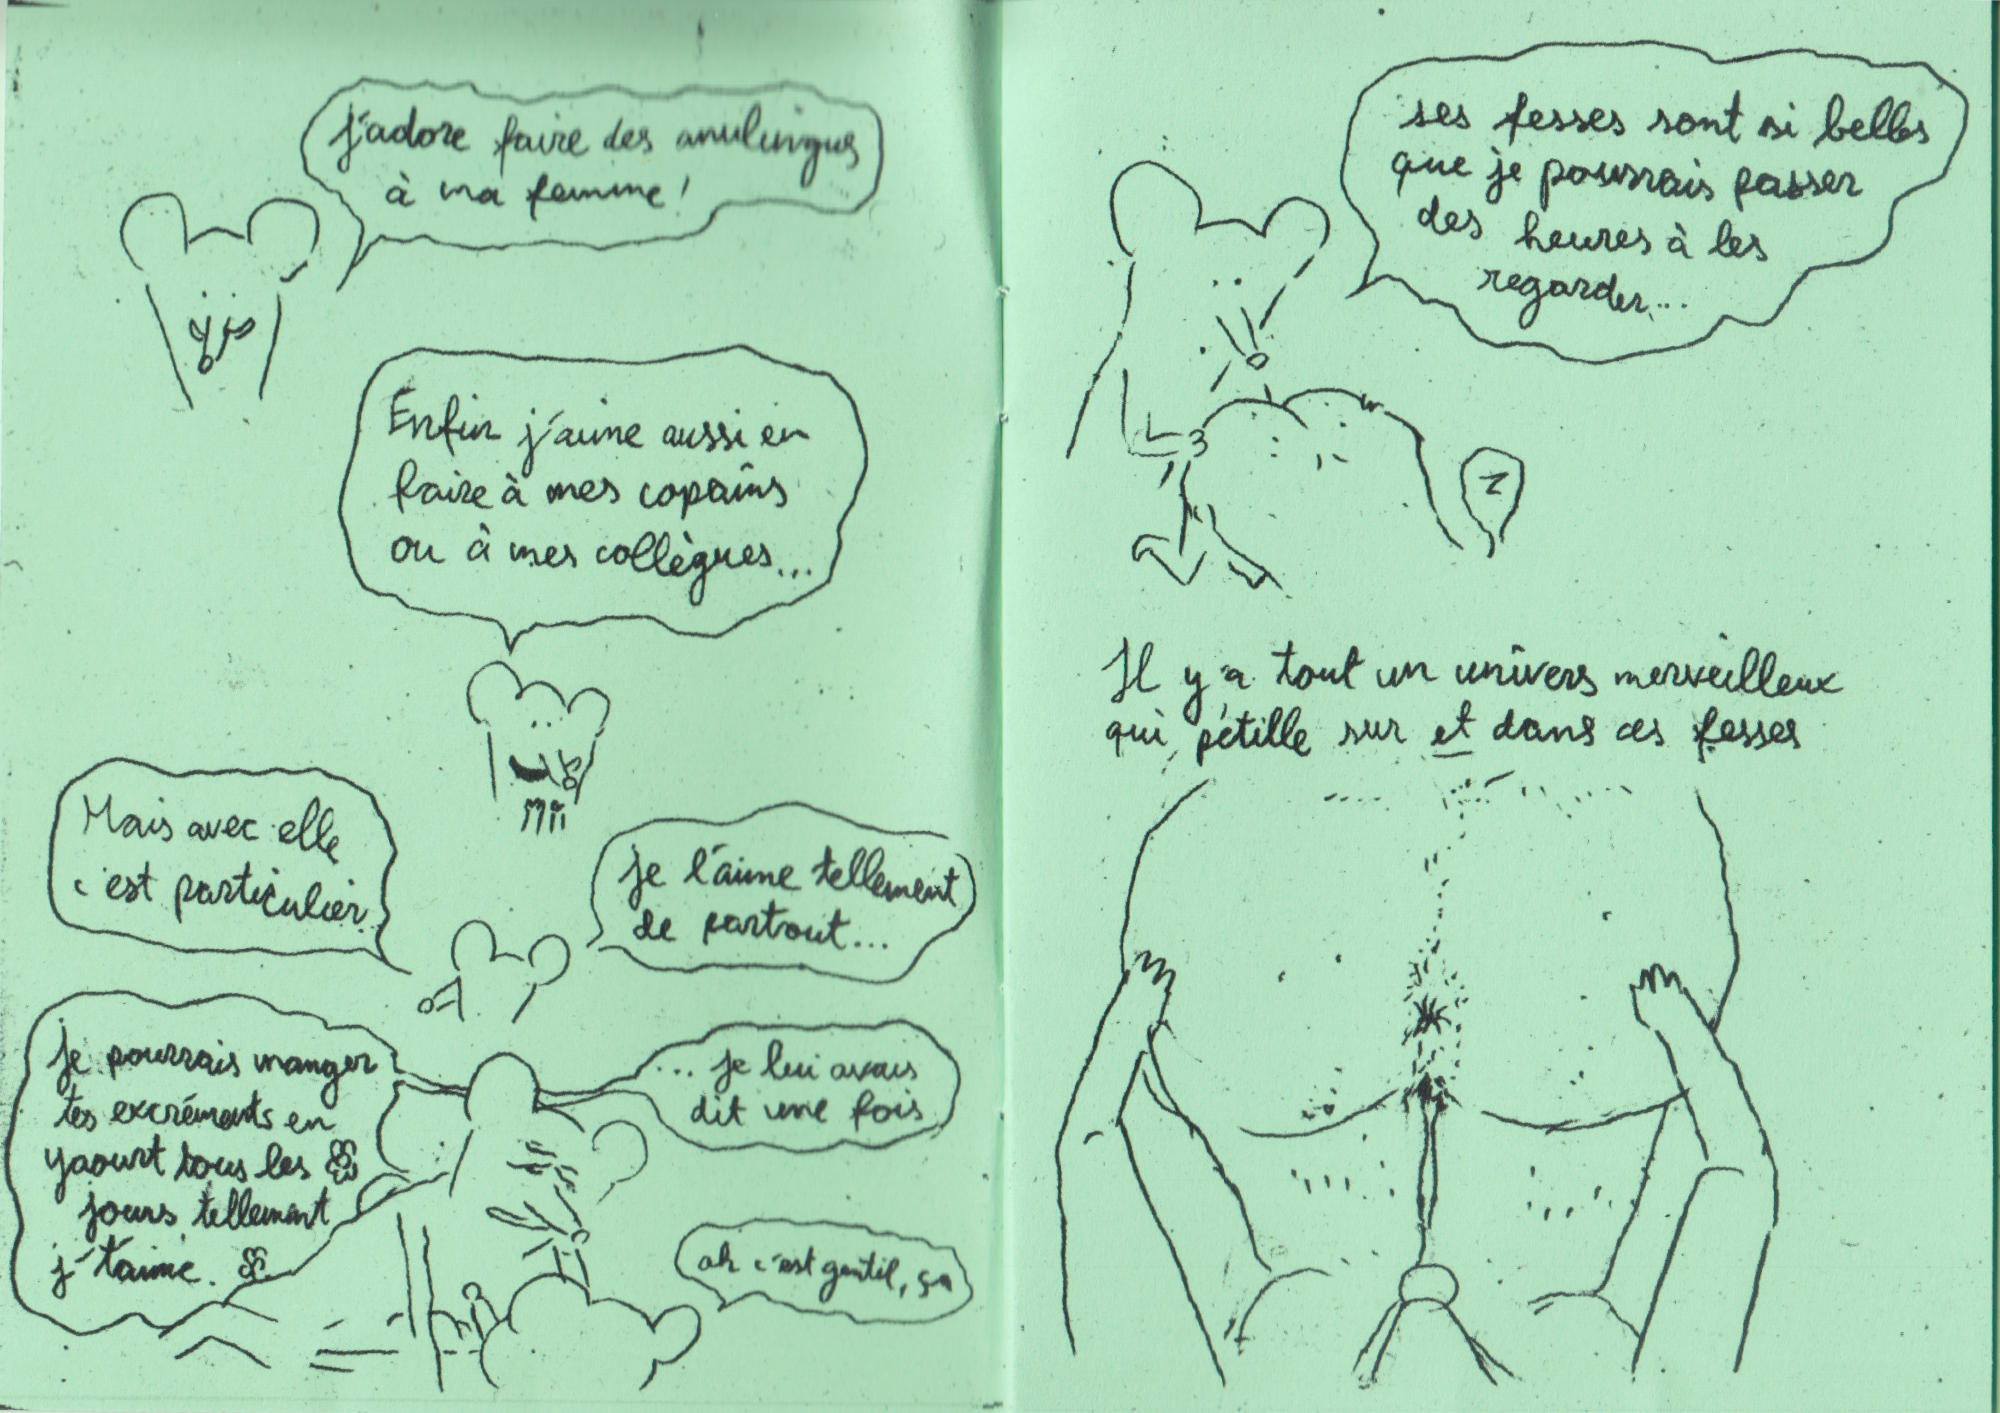 j'adore faire des anulingus
à ma femme !
Enfin j'aime aussi en
faire à mes copains
ou à mes collègues...
Mais avec elle
c'est particulier
je l'aime tellement
de partout...
... je lui avais
dit une fois
je pourrais manger
tes excréments en
yaourt tous les
jours tellement
j't'aime.
oh c'est gentil, ça
ses fesses sont si belles
que je pourrais passer
des heures à les
regarder...
Z
Il y a tout un univers merveilleux
qui pétille sur et dans ces fesses